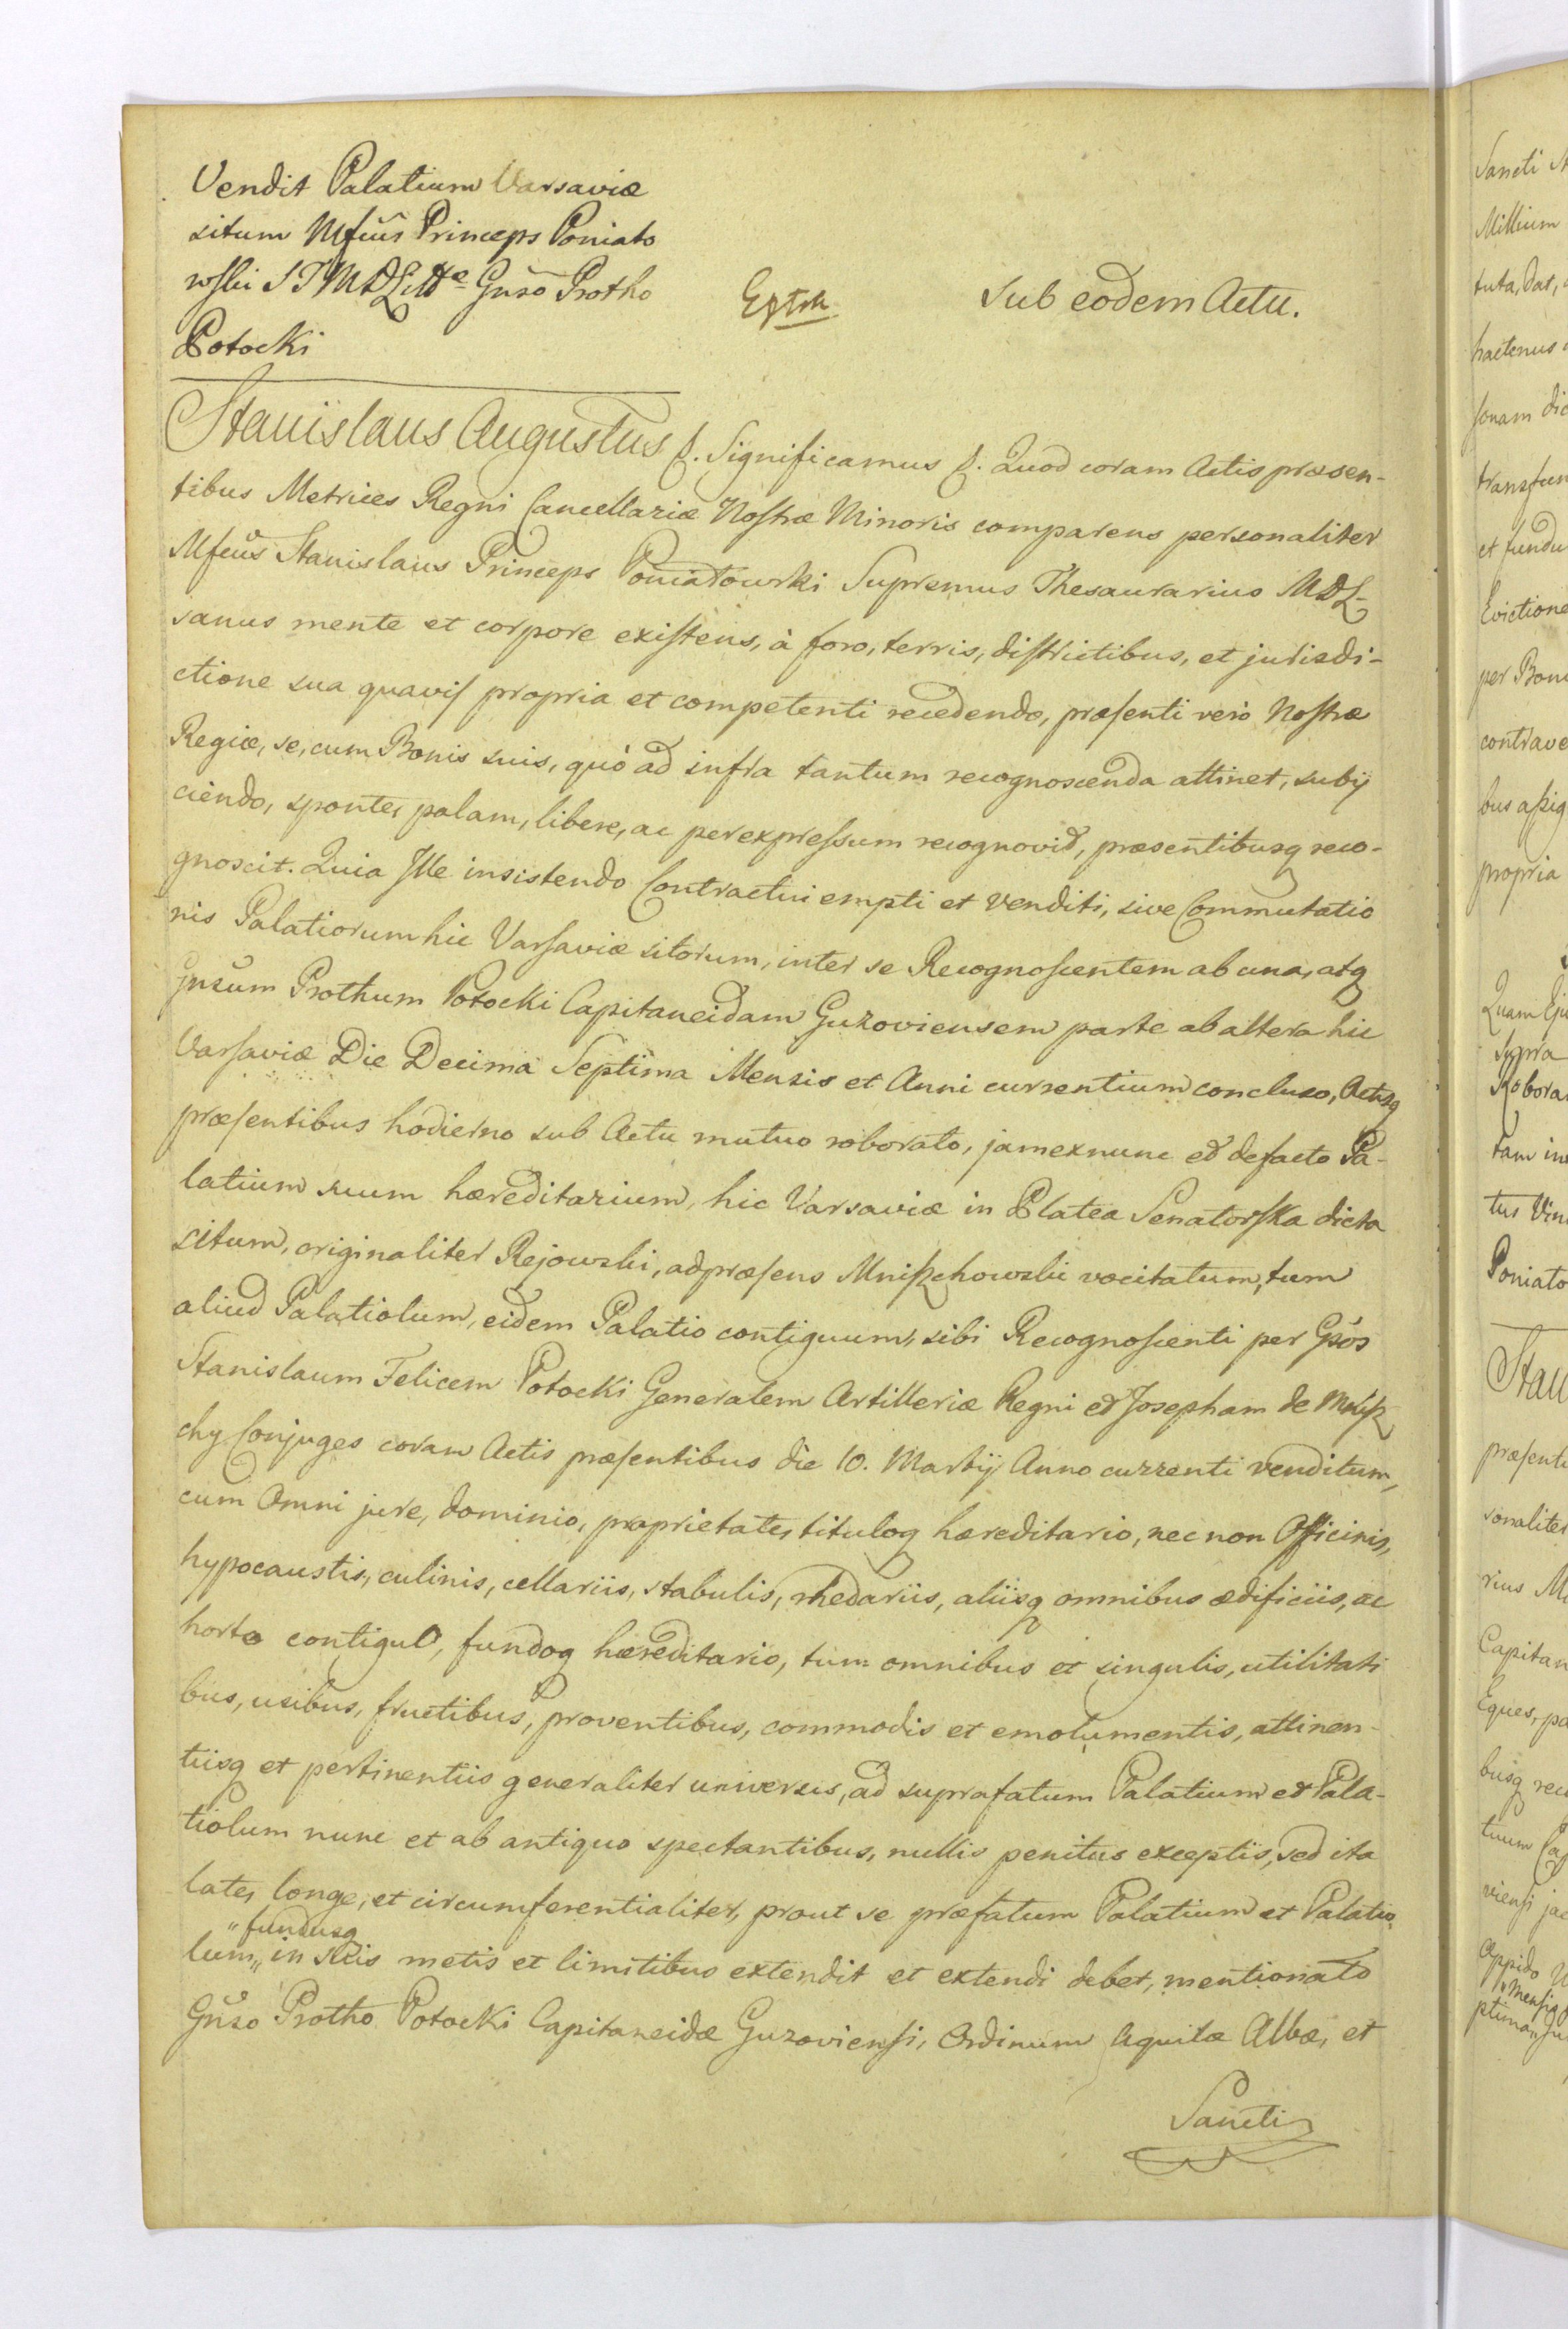 Vendit Palatium Varsaviæ
situm Mfcus Princeps Poniato
wski STMDLitt Gnso Protho
Potocki
Extrh
Sub eodem Actu.
Stanislaus Augustus &. Significamus &. Quod coram Actis præsen-
tibus Metrices Regni Cancellariæ Nostræ Minoris comparens personaliter
Mfcus Stanislaus Princeps Poniatowski Supremus Thesaurarius MDL-
sanus mente et corpore existens, à foro, terris, districtibus, et jurisdi-
ctione sua quavis propria et competenti recedendo, præsenti verò Nostræ
Regiæ, se, cum Bonis suis, quò ad infra tantum recognoscenda attinet, subij
ciendo, sponte, palam, libere, ac per expressum recognovit, præsentibusq reco-
gnoscit. Quia Ille insistendo Contractui empti et venditi, sive Commutatio
nis Palatiorum hic Varsaviæ sitorum, inter se Recognoscentem ab una, atq
Gnsum Prothum Potocki Capitaneidam Guzoviensem parte ab altera hic
Varsaviæ Die Decima Septima Mensis et Anni currentium concluso, Actisq
præsentibus hodierno sub Actu mutuo roborato, jam ex nunc et de facto Pa-
latium suum hæreditarium, hic Varsaviæ in Platea Senatorska dicta
situm, originaliter Rejowski, ad præsens Mniszchowski vocitatum, tum
aliud Palatiolum, eidem Palatio contiguum, sibi Recognoscenti per Gsos
Stanislaum Felicem Potocki Generalem Artilleriæ Regni et Josepham de Mnisz
chy Conjuges coram Actis præsentibus die 10. Martij Anno currenti venditum,
cum Omni jure, dominio, proprietate, tituloq hæreditario, nec non Officinis,
hypocaustis, culinis, cellariis, stabulis, rhedariis, aliisq omnibus ædificiis, ac
horto contiguo, fundoq hæreditario, tum omnibus et singulis, utilitati
bus, usibus, fructibus, proventibus, commodis et emolumentis, attinen-
tiisq et pertinentiis generaliter universis, ad suprafatum Palatium et Pala-
tiolum nunc et ab antiquo spectantibus, nullis penitus exceptis, sed ita
late, longe, et circumferentialiter, prout se præfatum Palatium et Palatio
"fundusq
lum" in suis metis et limitibus extendit et extendi debet, mentionato
Gnso Protho Potocki Capitaneidæ Guzoviensi, Ordinum Aquilæ Albæ, et
Sancti
Sancti
Millium
tuta, dat,
hactenus
sonam
et fundu
Evictione
contrave
propria
Supra
Robora
tam in
Poniato
Stan
præsenti
sonaliter
Capitan
Eques,